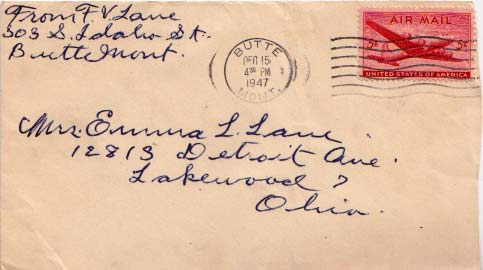 From F. V. Lane
303 S. Idaho St.
Butte Mont.
BUTTE
DEC 15
4 30 PM
1947
MONT.
AIR MAIL
5¢ 5¢
UNITED STATES OF AMERICA
Mrs. Emma L. Lane
12813 Detroit Ave.
Lakewood 7
Ohio.